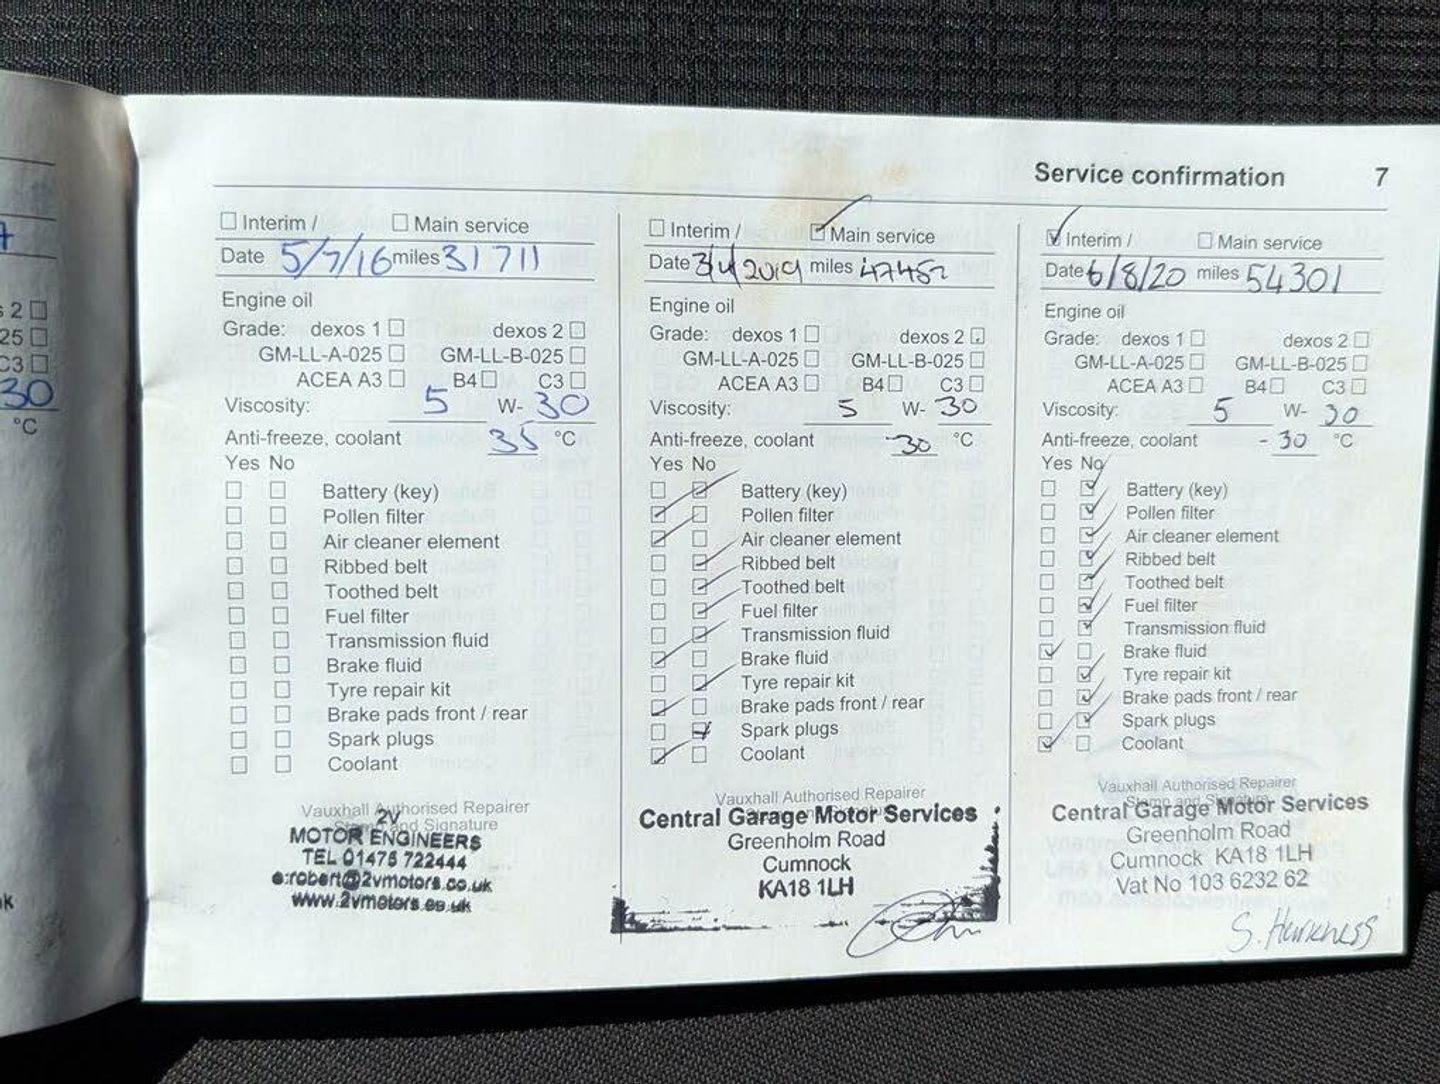 Service confirmation 7
☐ Interim / ☐ Main service
Date 5/7/16 miles 31711
Engine oil
Grade: dexos 1 ☐ dexos 2 ☐
GM-LL-A-025 ☐ GM-LL-B-025 ☐
ACEA A3 ☐ B4 ☐ C3 ☐
Viscosity: 5 W- 30
Anti-freeze, coolant 35 °C
Yes No
☐ ☐ Battery (key)
☐ ☐ Pollen filter
☐ ☐ Air cleaner element
☐ ☐ Ribbed belt
☐ ☐ Toothed belt
☐ ☐ Fuel filter
☐ ☐ Transmission fluid
☐ ☐ Brake fluid
☐ ☐ Tyre repair kit
☐ ☐ Brake pads front / rear
☐ ☐ Spark plugs
☐ ☐ Coolant
Vauxhall Authorised Repairer
Stamp and Signature
2V
MOTOR ENGINEERS
TEL 01475 722444
e:robert@2vmotors.co.uk
www.2vmotors.co.uk
☐ Interim / ☑ Main service
Date 3/4/2019 miles 47452
Engine oil
Grade: dexos 1 ☐ dexos 2 ☑
GM-LL-A-025 ☐ GM-LL-B-025 ☐
ACEA A3 ☐ B4 ☐ C3 ☐
Viscosity: 5 W- 30
Anti-freeze, coolant -30 °C
Yes No
☐ ☑ Battery (key)
☑ ☐ Pollen filter
☑ ☐ Air cleaner element
☐ ☑ Ribbed belt
☐ ☑ Toothed belt
☐ ☑ Fuel filter
☐ ☑ Transmission fluid
☑ ☐ Brake fluid
☐ ☑ Tyre repair kit
☑ ☐ Brake pads front / rear
☐ ☑ Spark plugs
☑ ☐ Coolant
Vauxhall Authorised Repairer
Central Garage Motor Services
Greenholm Road
Cumnock
KA18 1LH
☑ Interim / ☐ Main service
Date 6/8/20 miles 54301
Engine oil
Grade: dexos 1 ☐ dexos 2 ☐
GM-LL-A-025 ☐ GM-LL-B-025 ☐
ACEA A3 ☐ B4 ☐ C3 ☐
Viscosity: 5 W- 30
Anti-freeze, coolant -30 °C
Yes No
☐ ☑ Battery (key)
☐ ☑ Pollen filter
☐ ☑ Air cleaner element
☐ ☑ Ribbed belt
☐ ☑ Toothed belt
☐ ☑ Fuel filter
☐ ☑ Transmission fluid
☑ ☐ Brake fluid
☐ ☑ Tyre repair kit
☐ ☑ Brake pads front / rear
☐ ☑ Spark plugs
☑ ☐ Coolant
Vauxhall Authorised Repairer
Stamp and Signature
Central Garage Motor Services
Greenholm Road
Cumnock KA18 1LH
Vat No 103 6232 62
S. Harkness